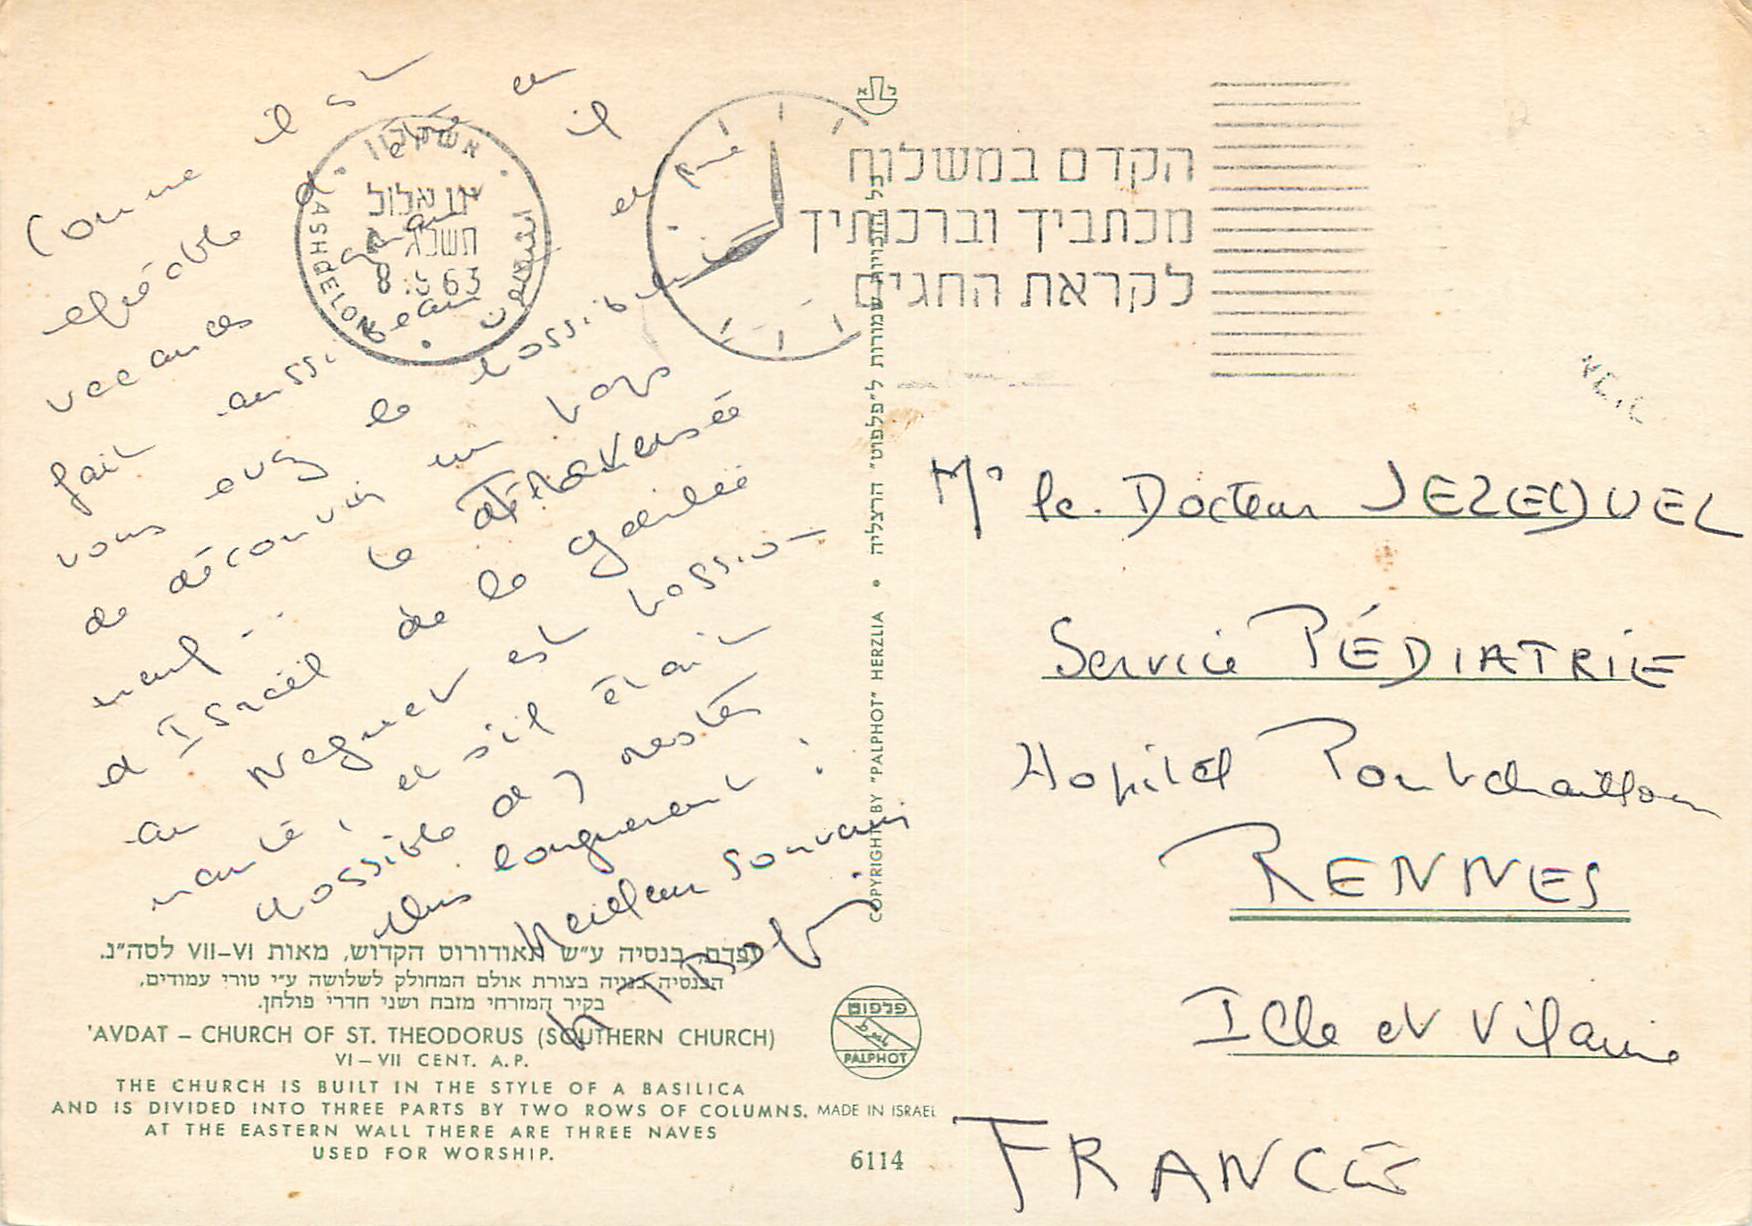 Comme il est
agréable d'être en
vacances quand il
fait aussi beau et que
vous avez la possibilité
de découvrir un pays
neuf... La traversée
d'Israël de la Galilée
au Neguev est passion-
nante, et s'il était
possible d'y rester
plus longuement !
Meilleur souvenir.
אשקלון
ASHQELON
אלול
תשכ"ג
63
הקדם במשלוח
מכתביך וברכותיך
לקראת החגים
כל הזכויות שמורות ל"פלפוט" הרצליה • COPYRIGHT BY "PALPHOT" HERZLIA
Mr le Docteur JEZEQUEL
Service PÉDIATRIE
Hopital Pontchaillou
RENNES
Ille et Vilaine
FRANCE
עבדת, כנסיה ע"ש תאודורוס הקדוש, מאות VII–VI לסה"נ.
הכנסיה בנויה בצורת אולם המחולק לשלושה ע"י טורי עמודים,
בקיר המזרחי מזבח ושני חדרי פולחן.
'AVDAT – CHURCH OF ST. THEODORUS (SOUTHERN CHURCH)
VI – VII CENT. A.P.
THE CHURCH IS BUILT IN THE STYLE OF A BASILICA
AND IS DIVIDED INTO THREE PARTS BY TWO ROWS OF COLUMNS.
AT THE EASTERN WALL THERE ARE THREE NAVES
USED FOR WORSHIP.
פלפוט
PALPHOT
MADE IN ISRAEL
6114